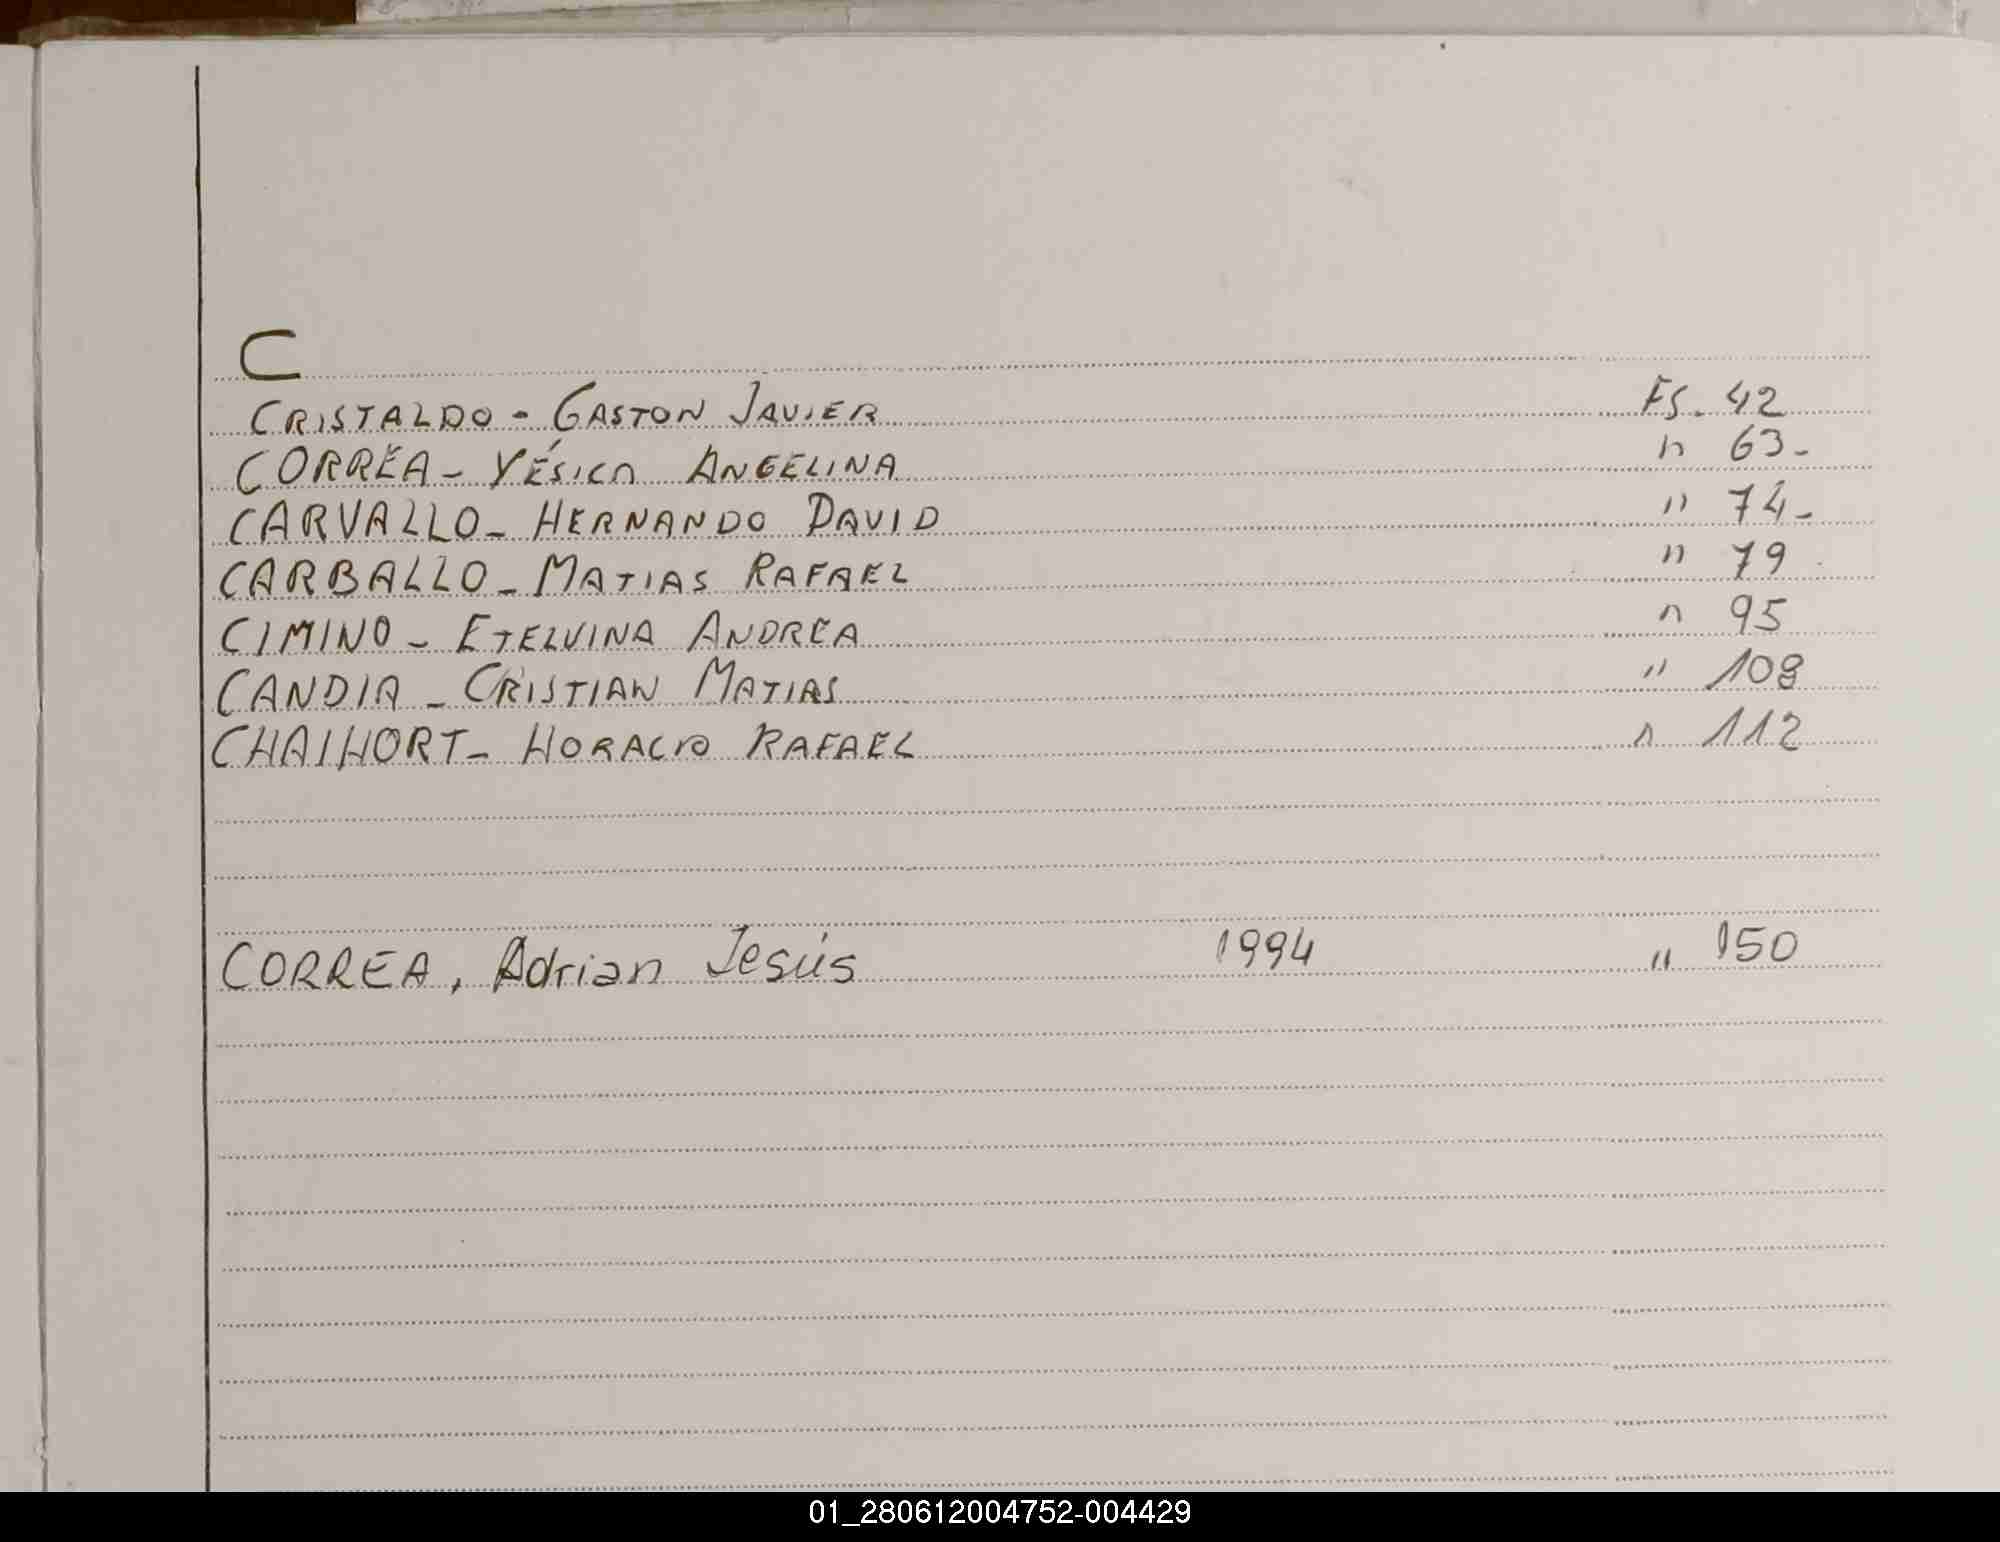 C
CRISTALDO - GASTON JAVIER FS. 42
CORREA - YÉSICA ANGELINA " 63-
CARVALLO - HERNANDO DAVID " 74-
CARBALLO - MATIAS RAFAEL " 79
CIMINO - ETELVINA ANDREA " 95
CANDIA - CRISTIAN MATIAS " 108
CHAIHORT - HORACIO RAFAEL " 112
CORREA, Adrian Jesús 1994 " 150
01_280612004752-004429